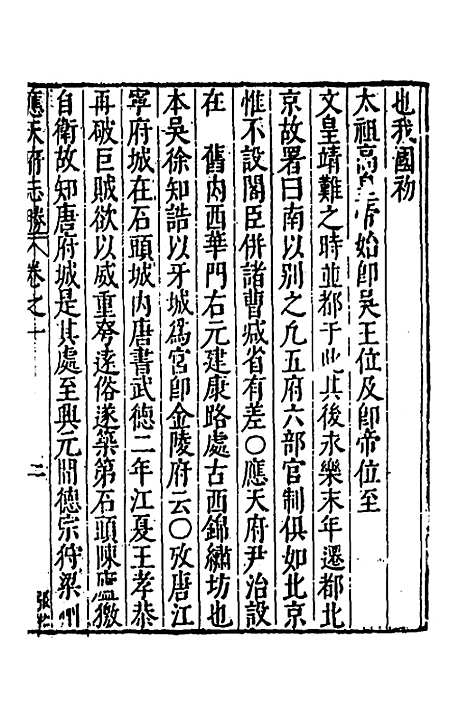 也我國初
太祖高皇帝始卽吳王位及卽帝位至
文皇靖難之時並都于此其後永樂末年遷都北
京故署曰南以別之凢五府六部官制俱如北京
惟不設閣臣併諸曹臧省有差〇應天府尹治設
在　舊內西華門右元建康路處古西錦繡坊也
本吳徐知誥以牙城爲宮卽金陵府云〇攷唐江
寧府城在石頭城內唐書武德二年江夏王孝恭
再破巨賊欲以威重夸遠俗遂築第石頭陳廬徼
自衛故知唐府城是其處至興元間德宗狩梁州
應天府志勝　卷之一　二